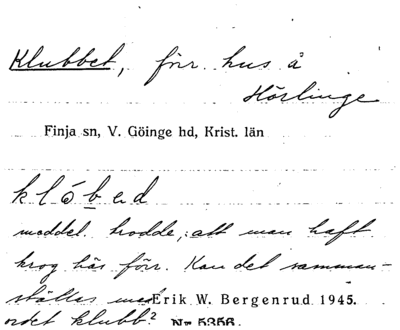 Klubbet, förr hus å
Hörlinge
Finja sn, V. Göinge hd, Krist. län
klóbed
meddel. trodde, att man haft
krog här förr. Kan det samman-
ställas med Erik W. Bergenrud 1945.
ordet klubb? Nr 5356.